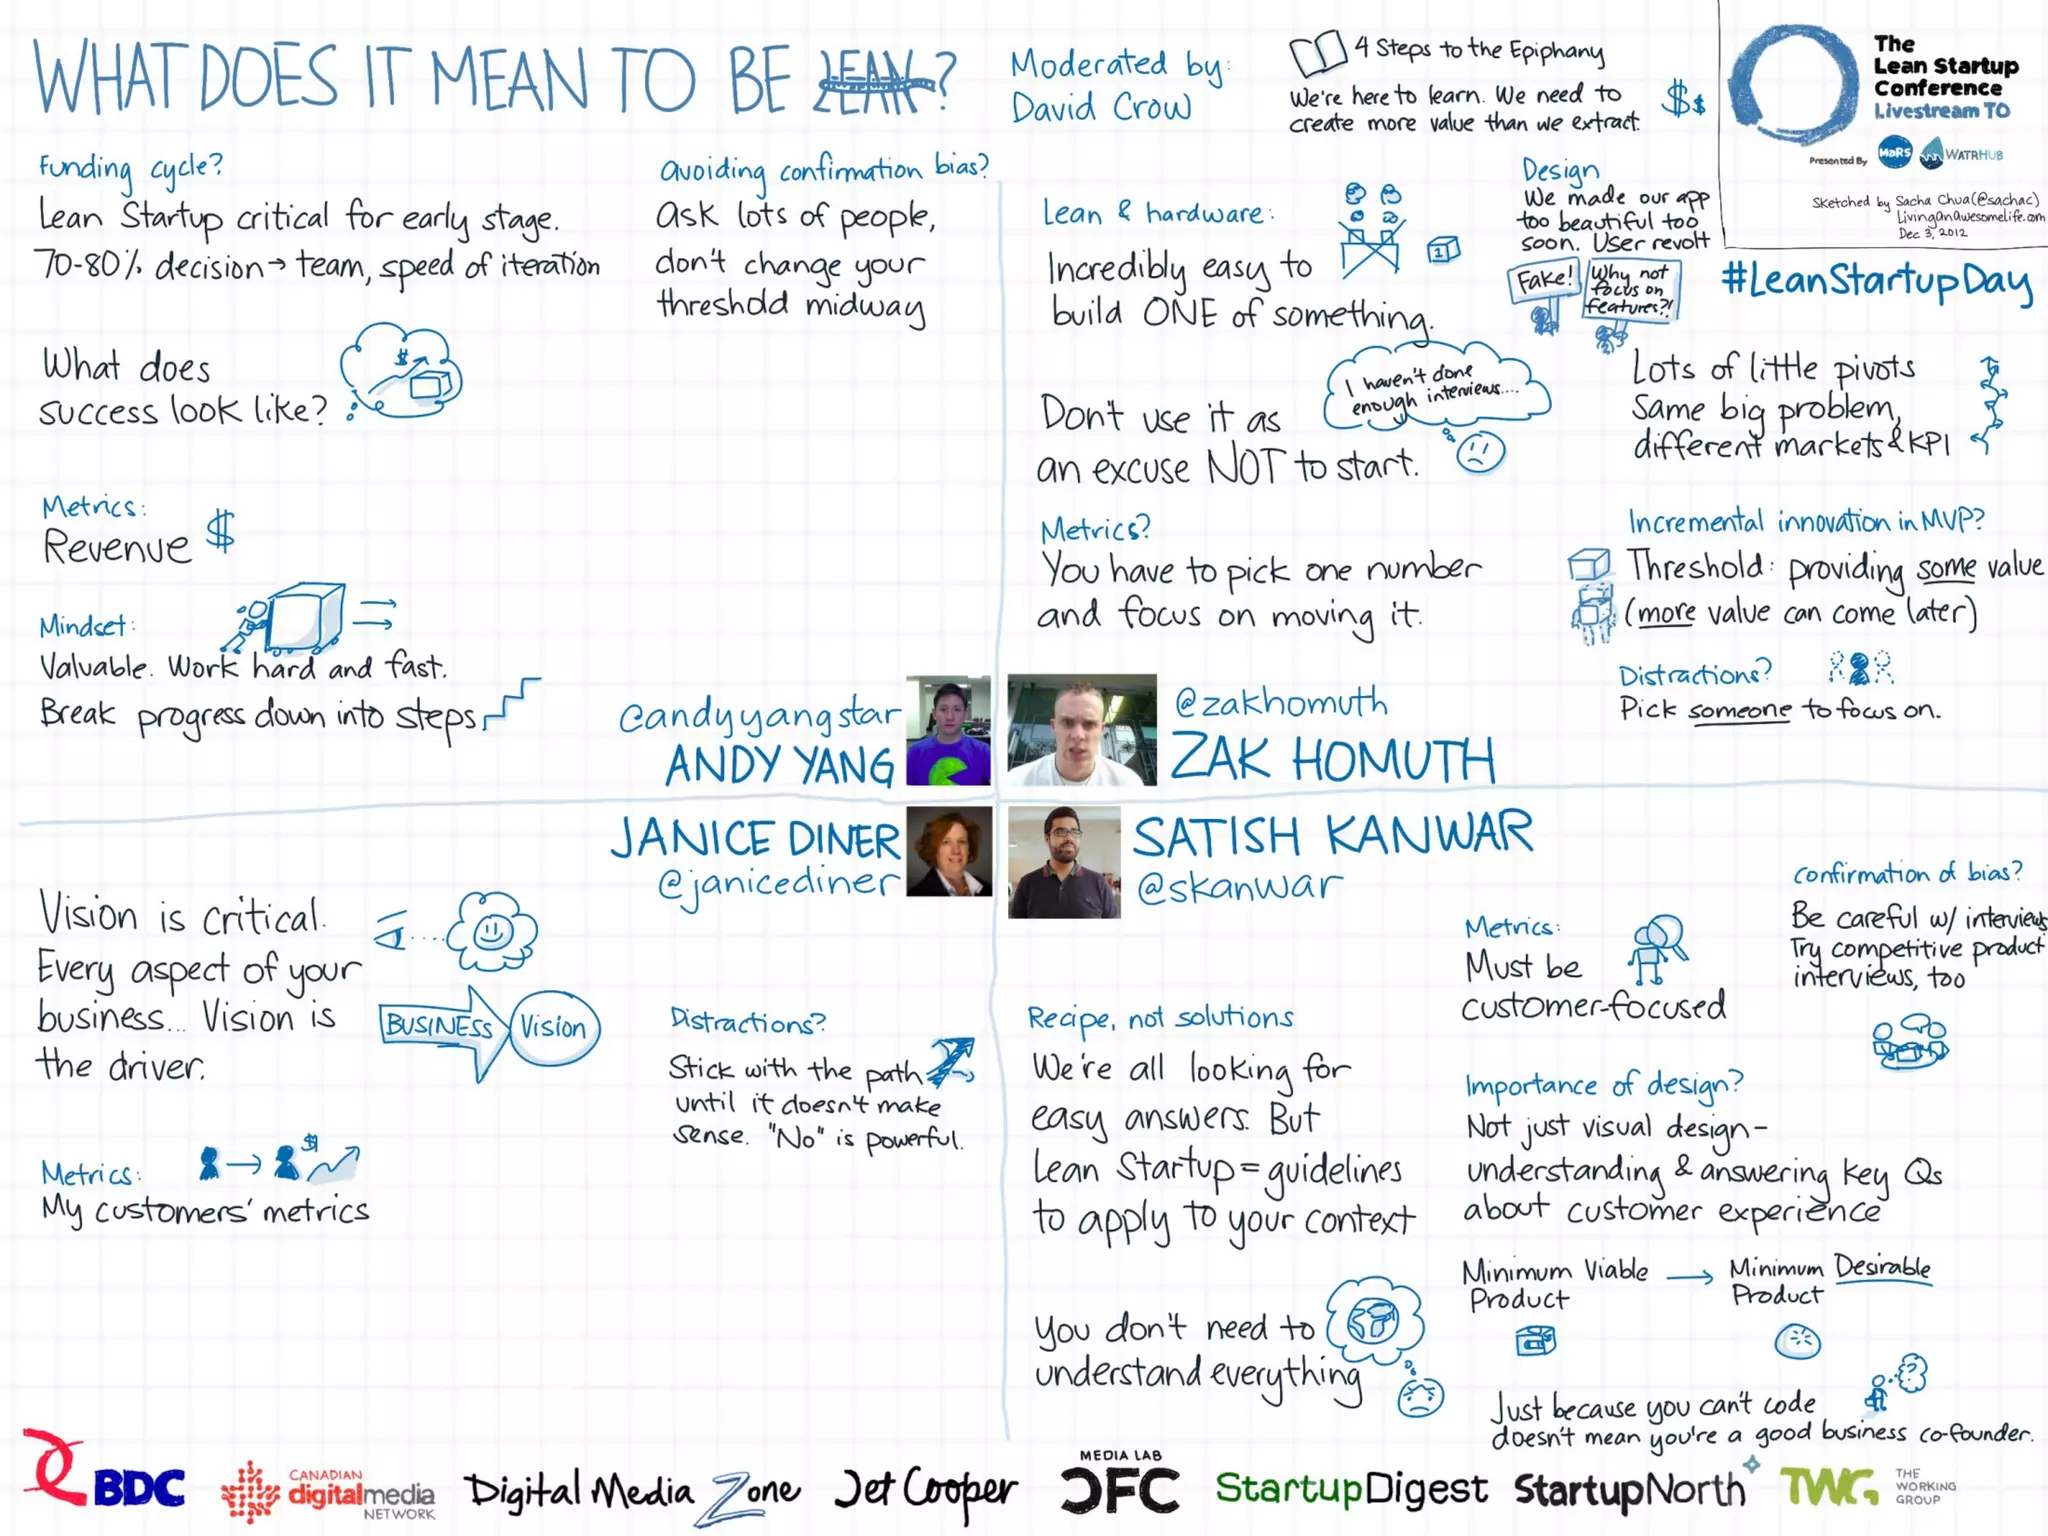 WHAT DOES IT MEAN TO BE LEAN?
Moderated by:
David Crow
4 Steps to the Epiphany
We're here to learn. We need to
create more value than we extract.
$$
The
Lean Startup
Conference
Livestream TO
Presented By MaRS WATRHUB
Sketched by Sacha Chua (@sachac)
LivingAnAwesomeLife.com
Dec 3, 2012
#LeanStartupDay
Funding cycle?
Lean Startup critical for early stage.
70-80% decision → team, speed of iteration
What does
success look like?
$
Metrics:
Revenue $
Mindset:
Valuable. Work hard and fast.
Break progress down into steps
avoiding confirmation bias?
ask lots of people,
don't change your
threshold midway
@andyyangstar
ANDY YANG
Lean & hardware:
Incredibly easy to
build ONE of something.
1
Don't use it as
an excuse NOT to start.
I haven't done
enough interviews....
Metrics?
You have to pick one number
and focus on moving it.
@zakhomuth
ZAK HOMUTH
Design
We made our app
too beautiful too
soon. User revolt
Fake!
Why not
focus on
features?!
Lots of little pivots
Same big problem,
different markets & KPI
Incremental innovation in MVP?
Threshold: providing some value
(more value can come later)
Distractions?
Pick someone to focus on.
JANICE DINER
@janicediner
Vision is critical.
Every aspect of your
business... Vision is
the driver.
BUSINESS Vision
Metrics:
My customers' metrics
$
Distractions?
Stick with the path
until it doesn't make
sense. "No" is powerful.
SATISH KANWAR
@skanwar
Recipe, not solutions
We're all looking for
easy answers. But
Lean Startup = guidelines
to apply to your context
You don't need to
understand everything
Metrics:
Must be
customer-focused
confirmation of bias?
Be careful w/ interviews
Try competitive product
interviews, too
Importance of design?
Not just visual design-
understanding & answering key Qs
about customer experience
Minimum Viable
Product
→
Minimum Desirable
Product
?
Just because you can't code
doesn't mean you're a good business co-founder.
BDC
CANADIAN
digitalmedia
NETWORK
Digital Media Zone
Jet Cooper
MEDIA LAB
CFC
StartupDigest
StartupNorth
TWG
THE
WORKING
GROUP